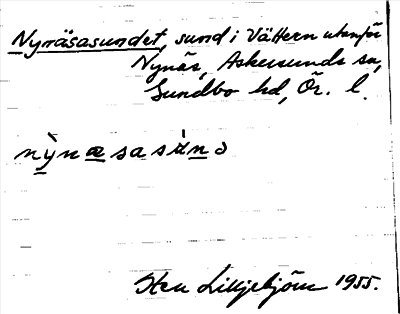 Nynäsasundet, sund i Vättern utanför
Nynäs, Askersunds sn,
Sundbo hd, Ör. l.
nỳnæsasún
Sten Liljebjörn 1955.